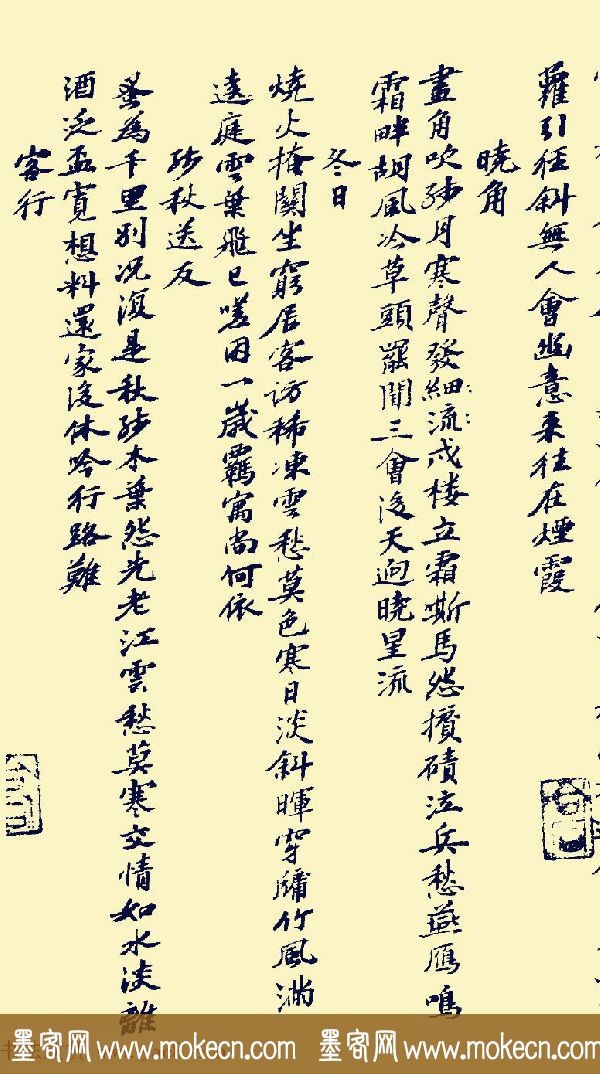 蘿引徑斜無人會幽意来往在煙霞
曉角
畫角吹殘月寒聲發細流戍楼立霜嘶馬怨擴磧泣兵愁燕雁鳴
霜畔胡風冷草頭罷聞三會後天迥曉星流
冬日
燒火掩關坐窮居客访稀凍雲愁莫色寒日淡斜暉穿牖竹風滿
遠庭雲葉飛已嗟困一歲羈寓尚何依
殘秋送友
為千里別况復是秋殘木葉怨先老江雲愁莫寒交情如水淡離
酒泛盃寛想料還家後休吟行路難
客行
墨客网 www.mokecn.com 墨客网 www.mokecn.com